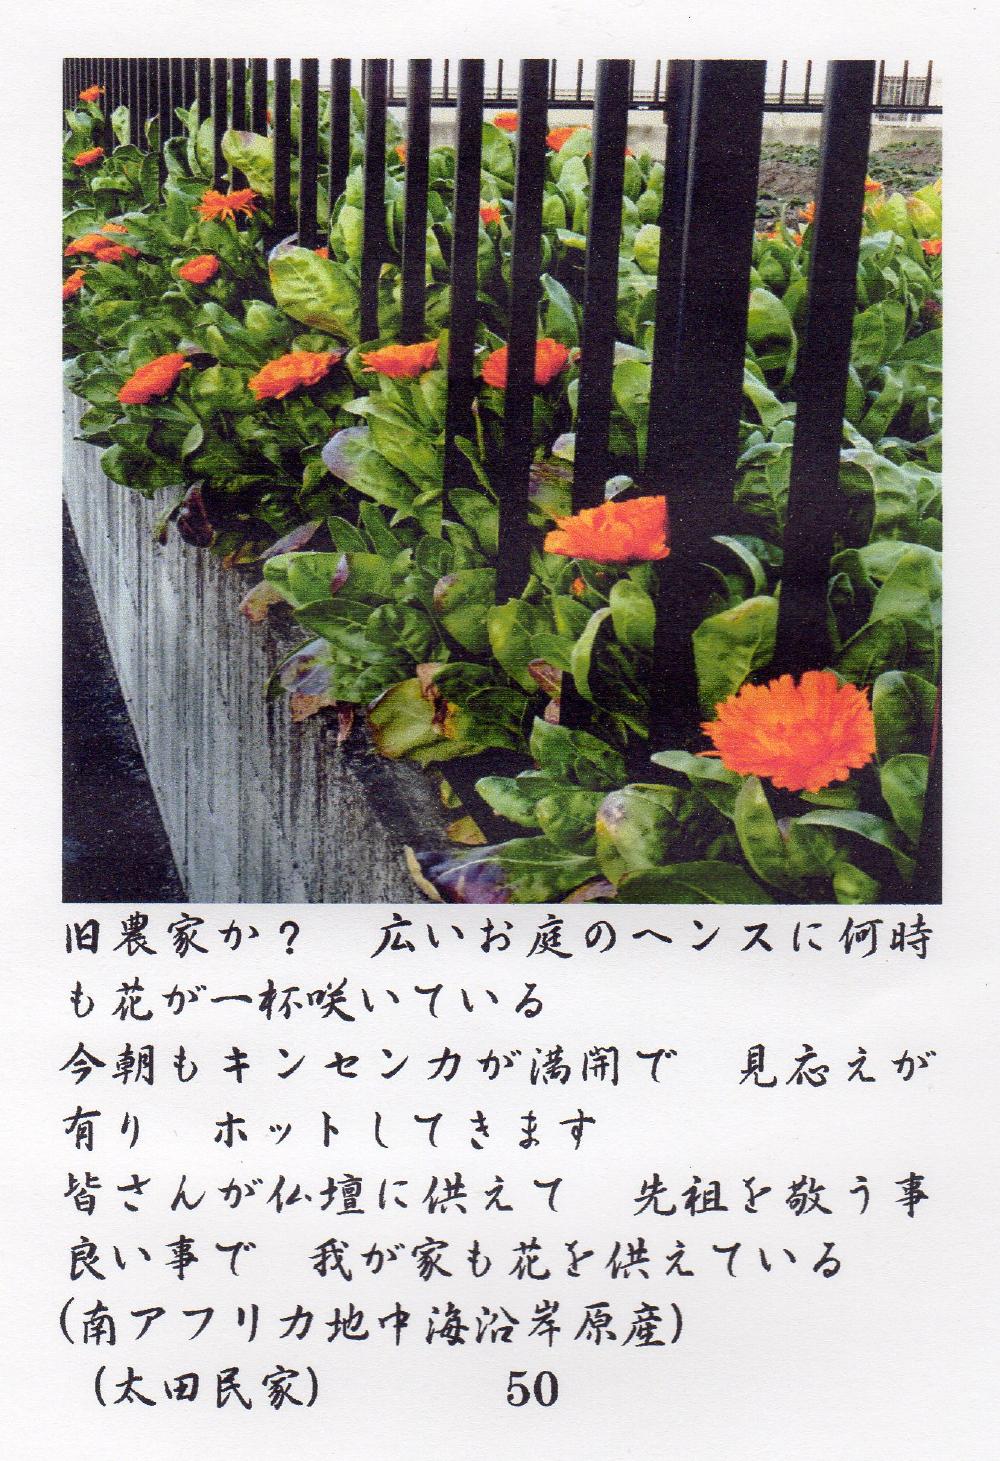 旧農家か？　広いお庭のヘンスに何時
も花が一杯咲いている
今朝もキンセンカが満開で　見応えが
有り　ホットしてきます
皆さんが仏壇に供えて　先祖を敬う事
良い事で　我が家も花を供えている
(南アフリカ地中海沿岸原産)
(太田民家)　50